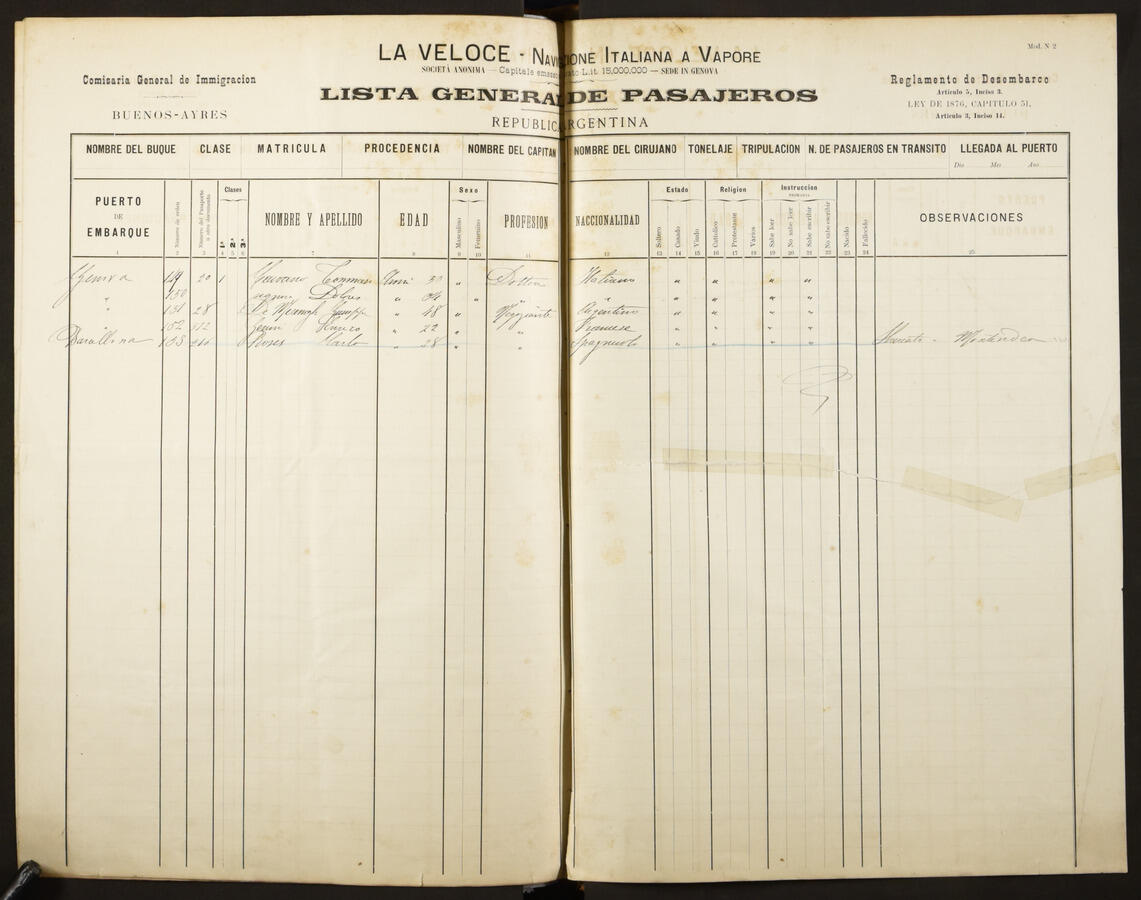 Mod. N 2
LA VELOCE - NAVI ZIONE ITALIANA A VAPORE
SOCIETÀ ANONIMA — Capitale emesso ato L.it. 15,000,000 — SEDE IN GENOVA
Comisaria General de Immigracion
BUENOS-AYRES
LISTA GENERAL DE PASAJEROS
REPUBLICA ARGENTINA
Reglamento de Desembarco
Articulo 5, Inciso 3.
LEY DE 1876, CAPITULO 51,
Articulo 3, Inciso 14.
NOMBRE DEL BUQUE CLASE MATRICULA PROCEDENCIA NOMBRE DEL CAPITAN NOMBRE DEL CIRUJANO TONELAJE TRIPULACION N. DE PASAJEROS EN TRANSITO LLEGADA AL PUERTO
Dia Mes Ano
PUERTO DE EMBARQUE Número de orden Número del Pasaporte u otro documento Clases 1ª 2ª 3ª NOMBRE Y APELLIDO EDAD Sexo Masculino Femenino PROFESION NACCIONALIDAD Estado Soltero Casado Viudo Religion Catolico Protestante Varios Instruccion Sabe leer No sabe leer Sabe escribir No sabe escribir Nacido Fallecido OBSERVACIONES
1 2 3 4 5 6 7 8 9 10 11 12 13 14 15 16 17 18 19 20 21 22 23 24 25
Genova 149 20 1 Tommaso Anni 30 " Dottore Italiano " " " "
" 150 " " " " " " " "
" 151 28 De " 48 " Negoziante Argentino " " " "
152 Enrico " 22 " " Francese " " " "
153 Roses Carlo " 28 " " Spagnuolo " " " "